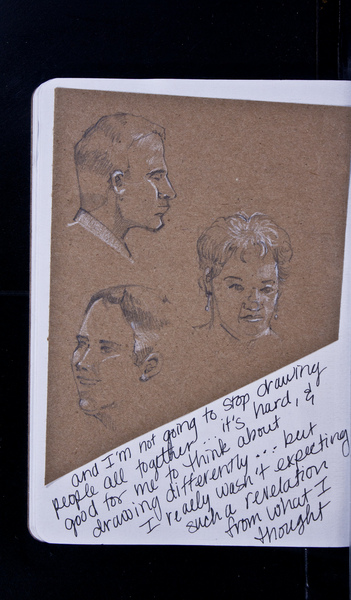 and I'm not going to stop drawing
people all together... it's hard, &
good for me to think about
drawing differently... but
I really wasn't expecting
such a revelation
from what I
thought